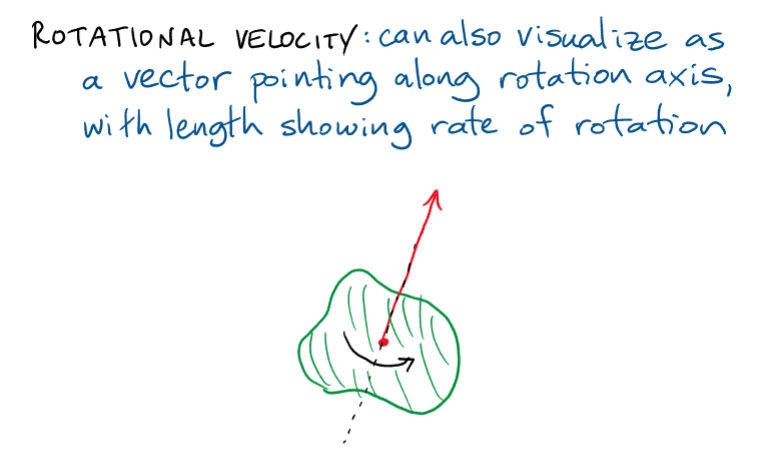 ROTATIONAL VELOCITY: can also visualize as
a vector pointing along rotation axis,
with length showing rate of rotation